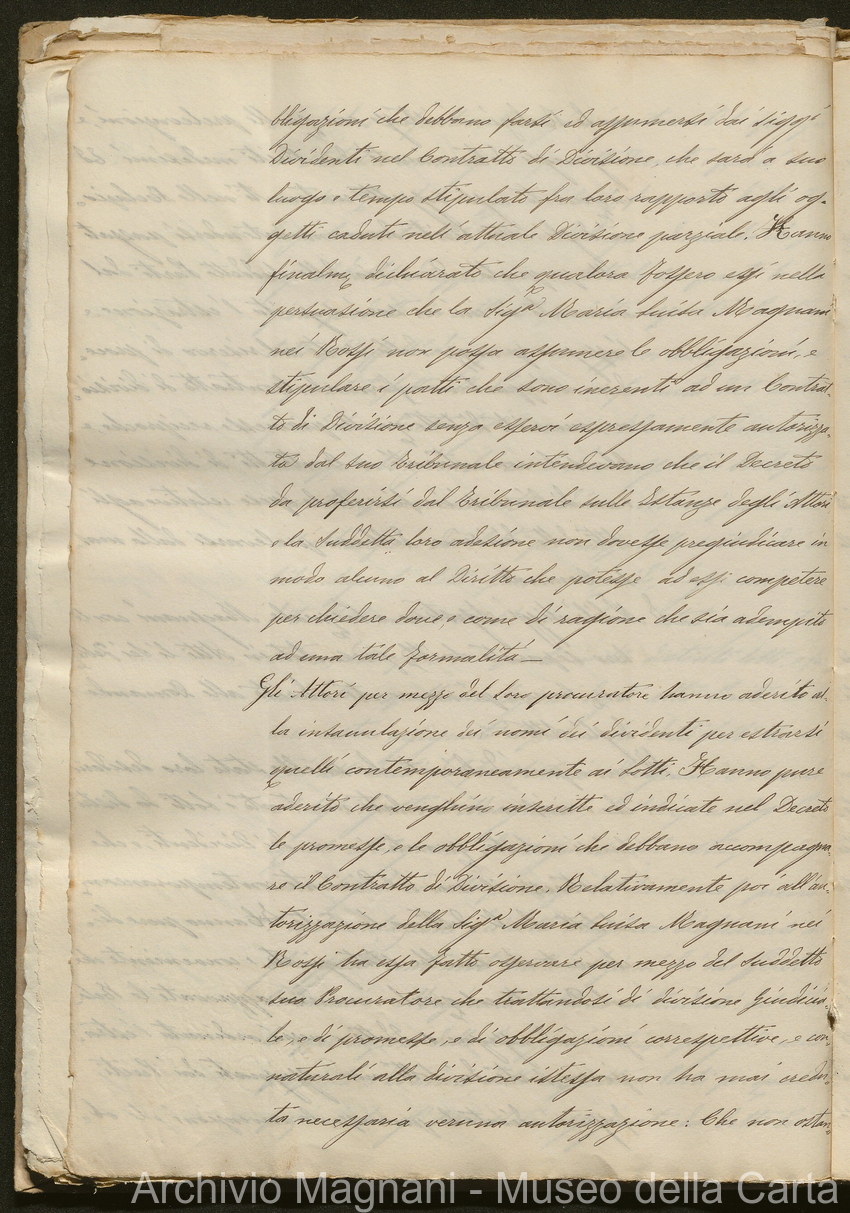 bligazioni che debbano farsi ed assumersi dai Sigg.i
Dividenti nel Contratto di Divisione, che sarà a suo
luogo e tempo stipulato fra loro rapporto agli og-
getti caduti nell'attuale Divisione parziale. Hanno
finalm.e dichiarato che qualora fossero essi nella
persuasione che la Sig.ra Maria Luisa Magnani
nei Rossi non possa assumere le obbligazioni, e
stipulare i patti che sono inerenti ad un Contrat-
to di Divisione senza esservi espressamente autorizza-
ta dal suo Tribunale intendevano che il Decreto
da proferirsi dal Tribunale sulle Istanze degli Attori
e la Suddetta loro adesione non dovesse pregiudicare in
modo alcuno al Diritto che potesse ad essi competere
per chiedere dove, e come di ragione che sia adempito
ad una tale formalità —
Gli Attori per mezzo del loro procuratore hanno aderito al-
la intavulazione dei nomi dei dividenti per estrarsi
quelli contemporaneamente ai Lotti. Hanno pure
aderito che venghino inscritte ed indicate nel Decreto
le promesse, e le obbligazioni che debbano accompagna-
re il Contratto di Divisione. Relativamente poi all'au-
torizzazione della Sig.ra Maria Luisa Magnani nei
Rossi ha essa fatto osservare per mezzo del Suddetto
suo Procuratore che trattandosi di divisione Giudicia-
le, e di promesse, e di obbligazioni correspettive, e con-
naturali alla divisione istessa non ha mai credu-
ta necessaria veruna autorizzazione: Che non ostan-
Archivio Magnani - Museo della Carta